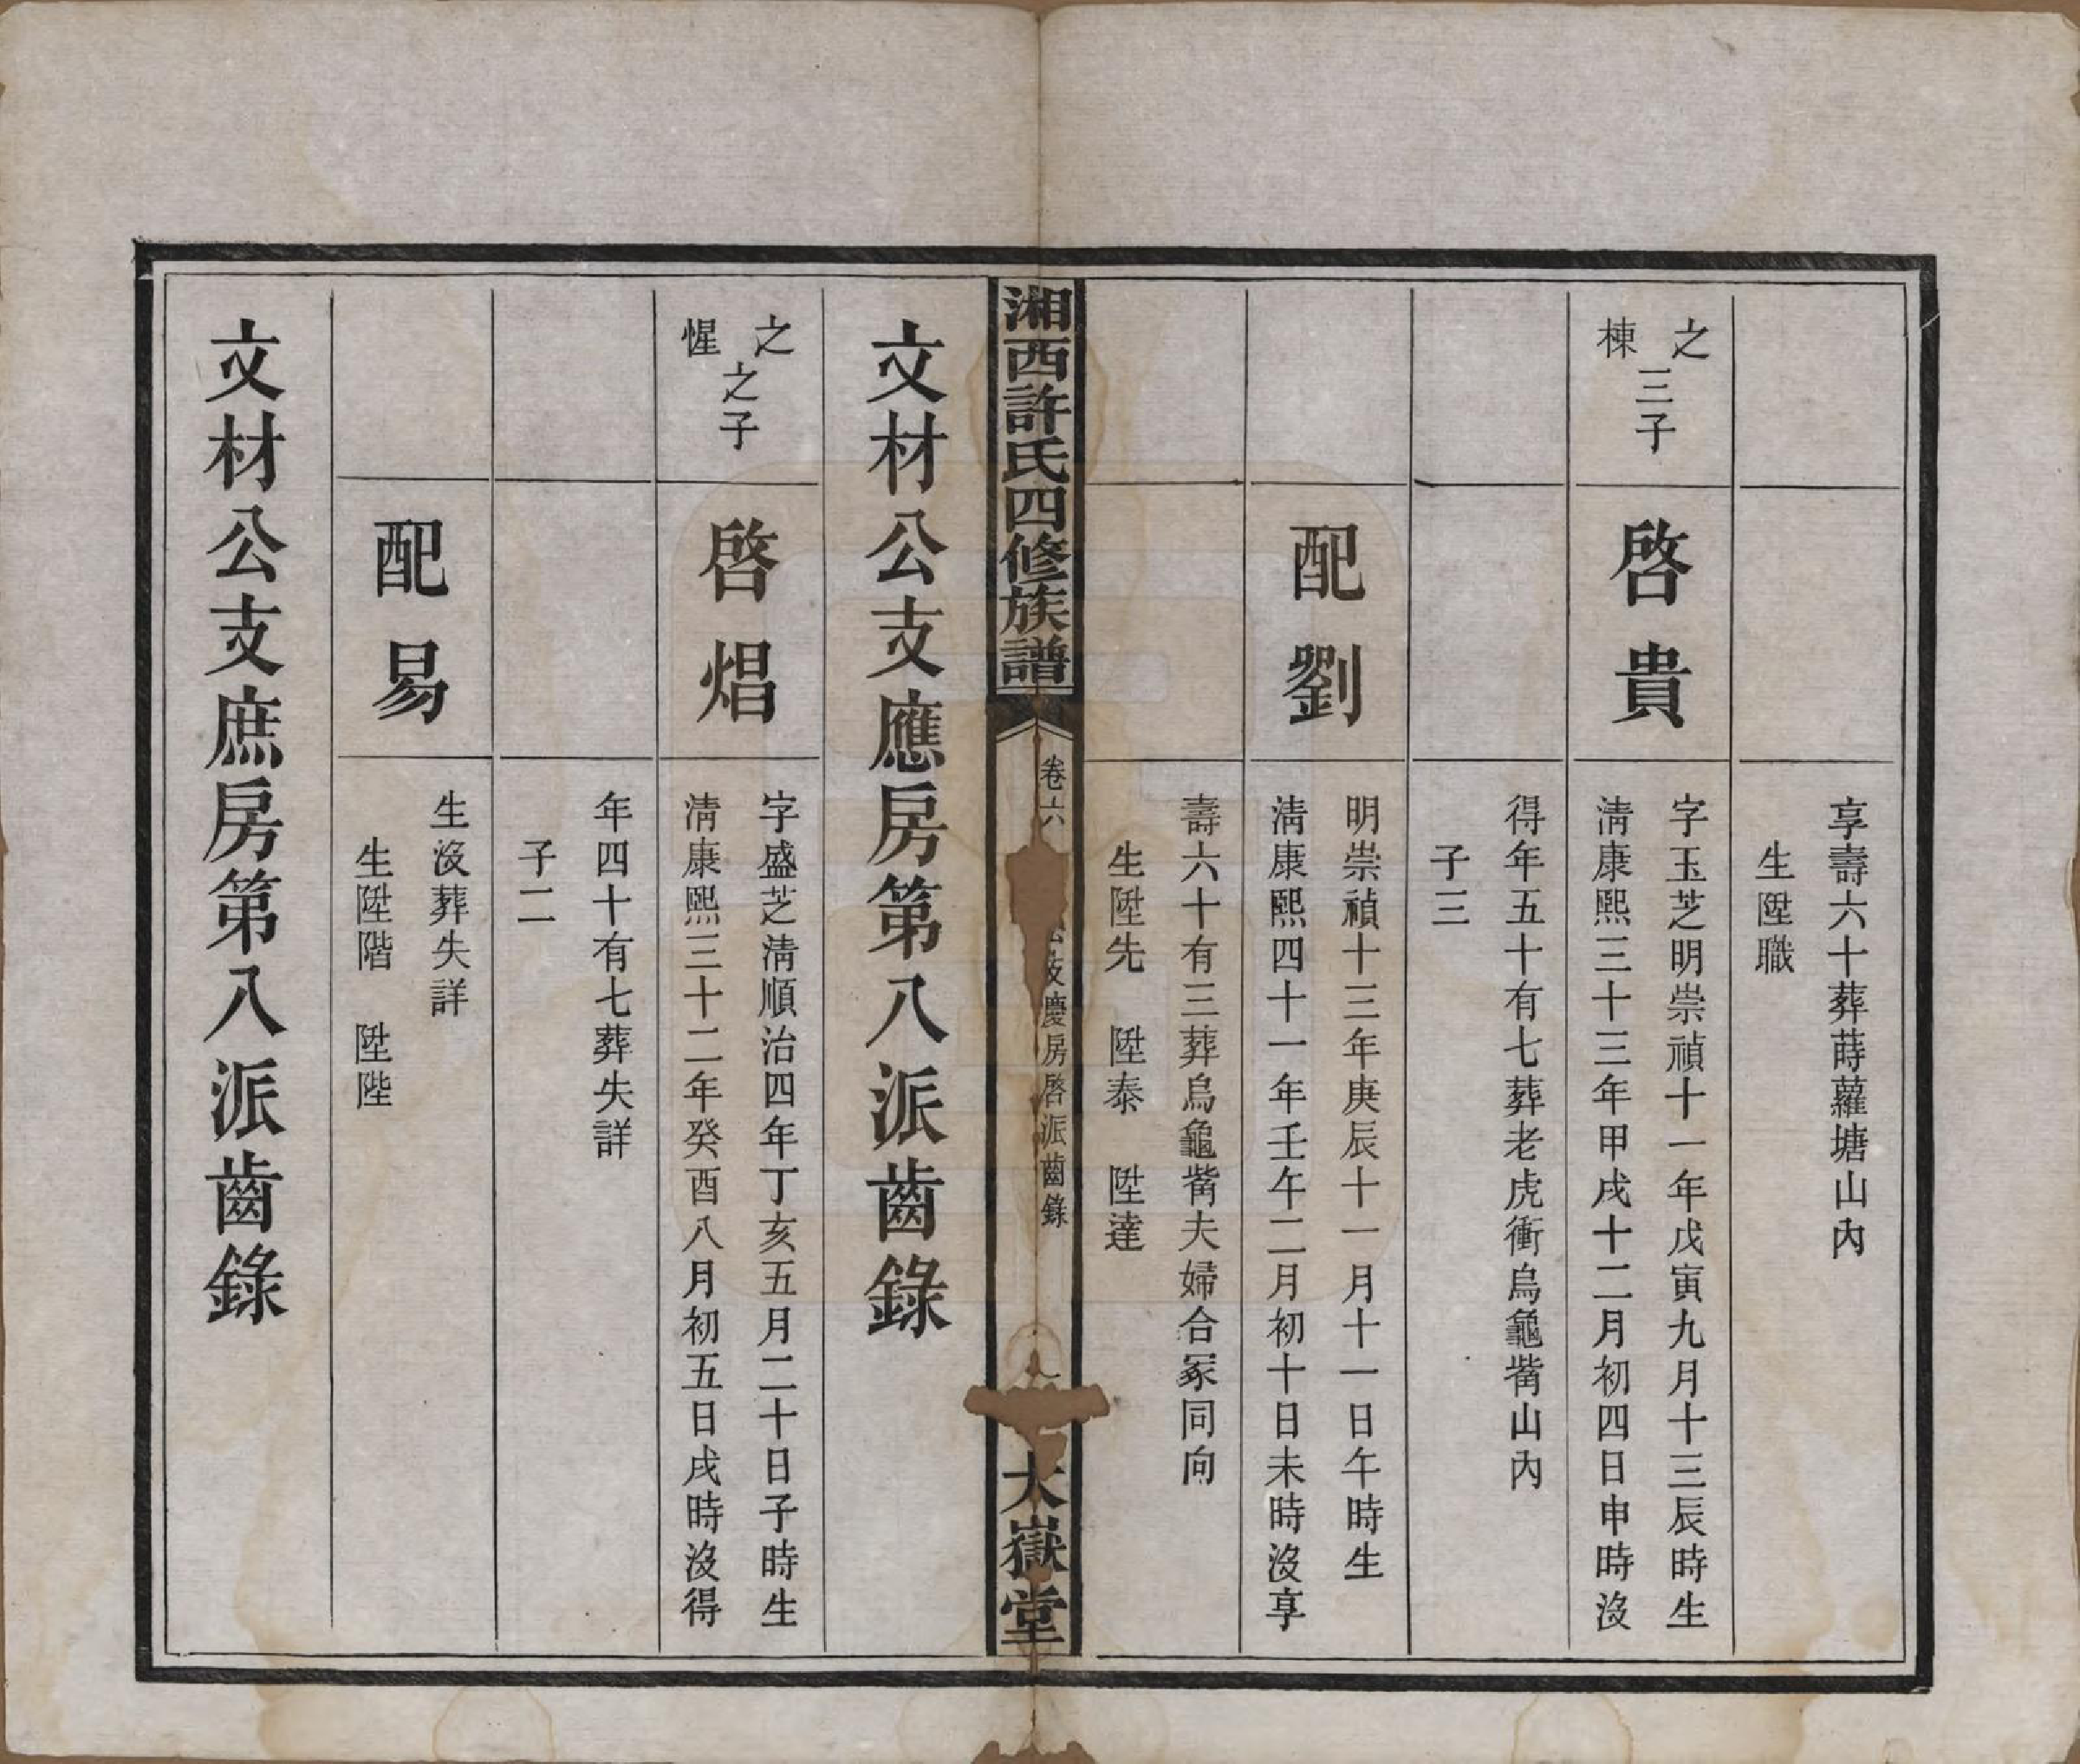 享壽六十葬蒔蘿塘山內
生陞職
之棟三子
啓貴
字玉芝明崇禎十一年戊寅九月十三辰時生
淸康熙三十三年甲戌十二月初四日申時沒
得年五十有七葬老虎衝烏龜觜山內
子三
配劉
明崇禎十三年庚辰十一月十一日午時生
淸康熙四十一年壬午二月初十日未時沒享
壽六十有三葬烏龜觜夫婦合冢同向
生陞先 陞泰 陞達
湘西許氏四修族譜
卷六
公支慶房啓派齒錄
大嶽堂
文材公支應房第八派齒錄
之惺之子
啓焻
字盛芝淸順治四年丁亥五月二十日子時生
淸康熙三十二年癸酉八月初五日戌時沒得
年四十有七葬失詳
子二
配易
生沒葬失詳
生陞階 陞陛
文材公支庶房第八派齒錄